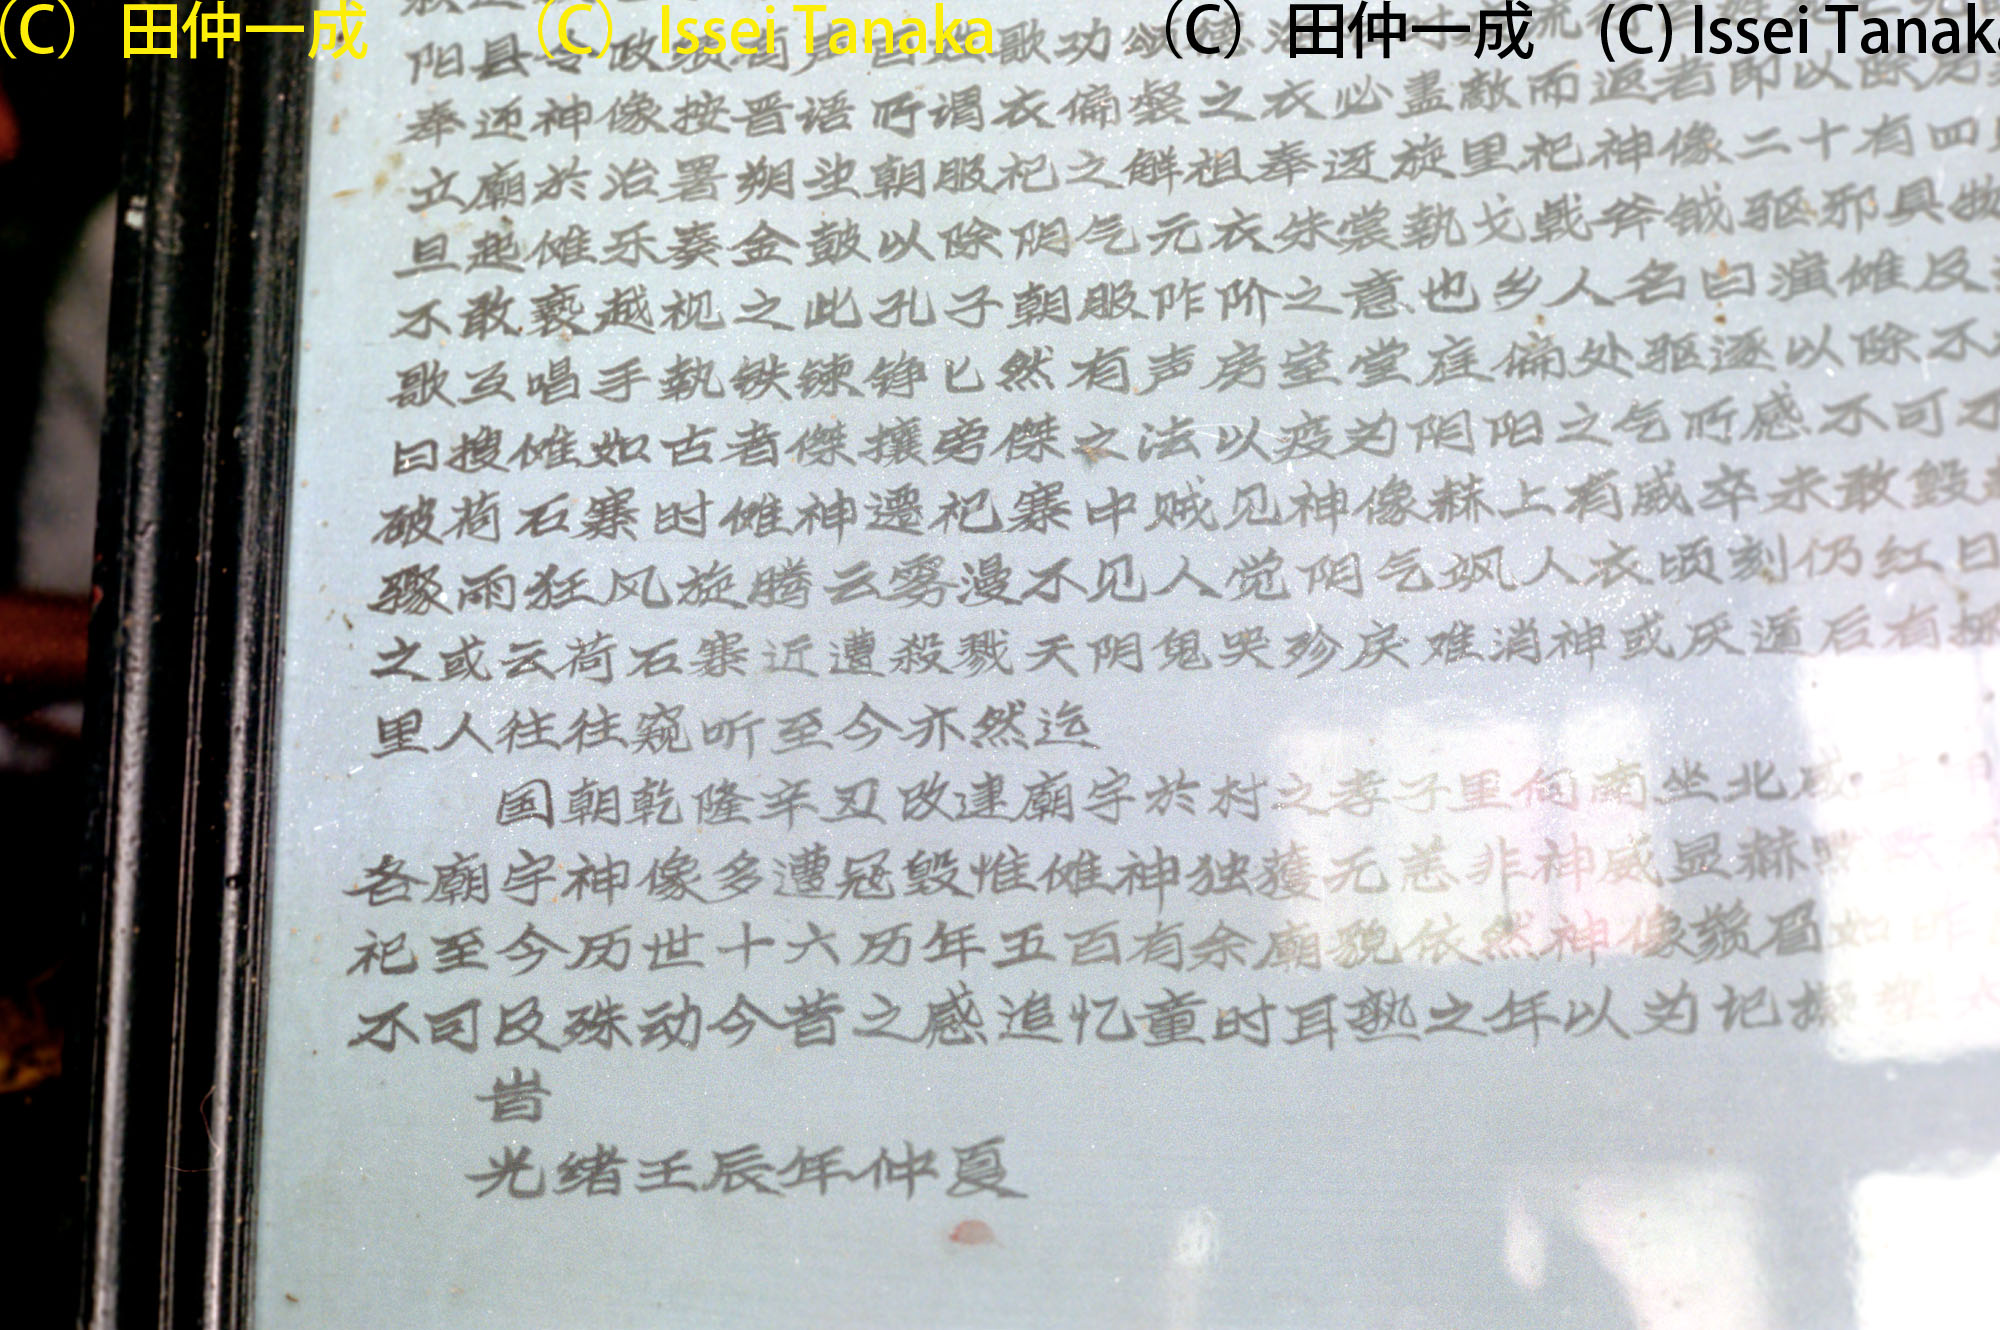 (C) 田仲一成 (C) Issei Tanaka (C) 田仲一成 (C) Issei Tanaka
阳县令政 声 歌功颂
奉迎神像按晋语所谓衣偏裻之衣必盡敵而返者即以除
立廟於治署朔望朝服祀之解祖奉迎旋里祀神像二十有四
旦起傩乐奏金鼓以除阴气元衣朱裳執戈戟斧钺驱邪具物
不敢亵越视之此孔子朝服阼阶之意也乡人名曰演傩及
歌互唱手執铁鍊铮匕然有声房室堂庭偏处驱逐以除不
曰搜傩如古者傑攘旁傑之法以疫为阴阳之气所感不可不
破荷石寨时傩神遷祀寨中贼见神像赫上有威卒未敢毁
骤雨狂风旋腾云雾漫不见人觉阴气飒人衣顷刻仍红日
之或云荷石寨近遭殺戮天阴鬼哭殄戾难消神或厌遁后有
里人往往窥听至今亦然迄
国朝乾隆辛丑改建廟宇於村之孝子里向南坐北咸
各廟宇神像多遭冦毁惟傩神独獲无恙非神威显赫
祀至今历世十六历年五百有余廟貌依然神像鬚眉如昨
不可及殊动今昔之感追忆童时耳熟之年以为记
旹
光绪壬辰年仲夏